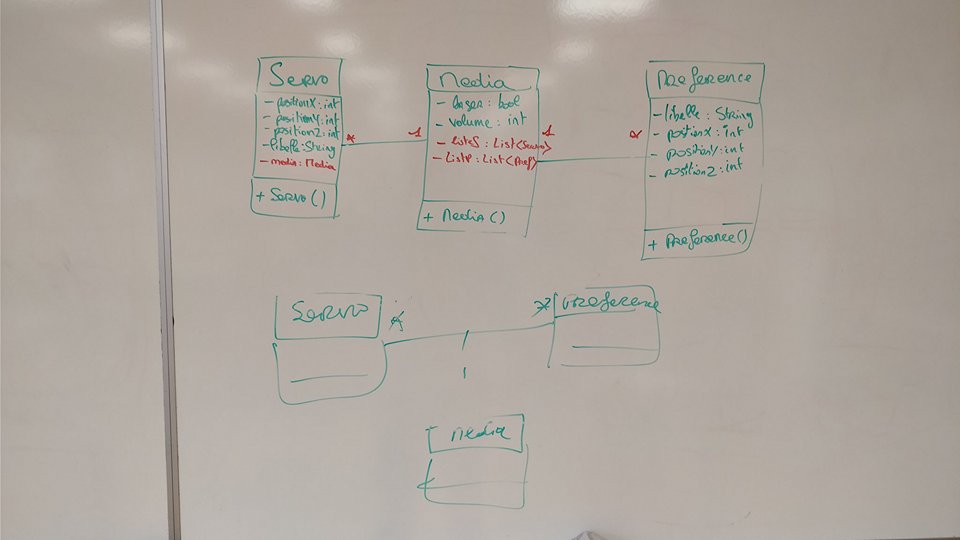 Servo
- positionX: int
- positionY: int
- positionZ: int
- libelle: String
- media: Media
+ Servo()
*
1
Media
- laser: bool
- volume: int
- listeS: List<Servo>
- ListP: List<Pref>
+ Media()
1
*
Preference
- libelle: String
- postionX: int
- positionY: int
- positionZ: int
+ Preference()
Servo
*
*
Preference
Media